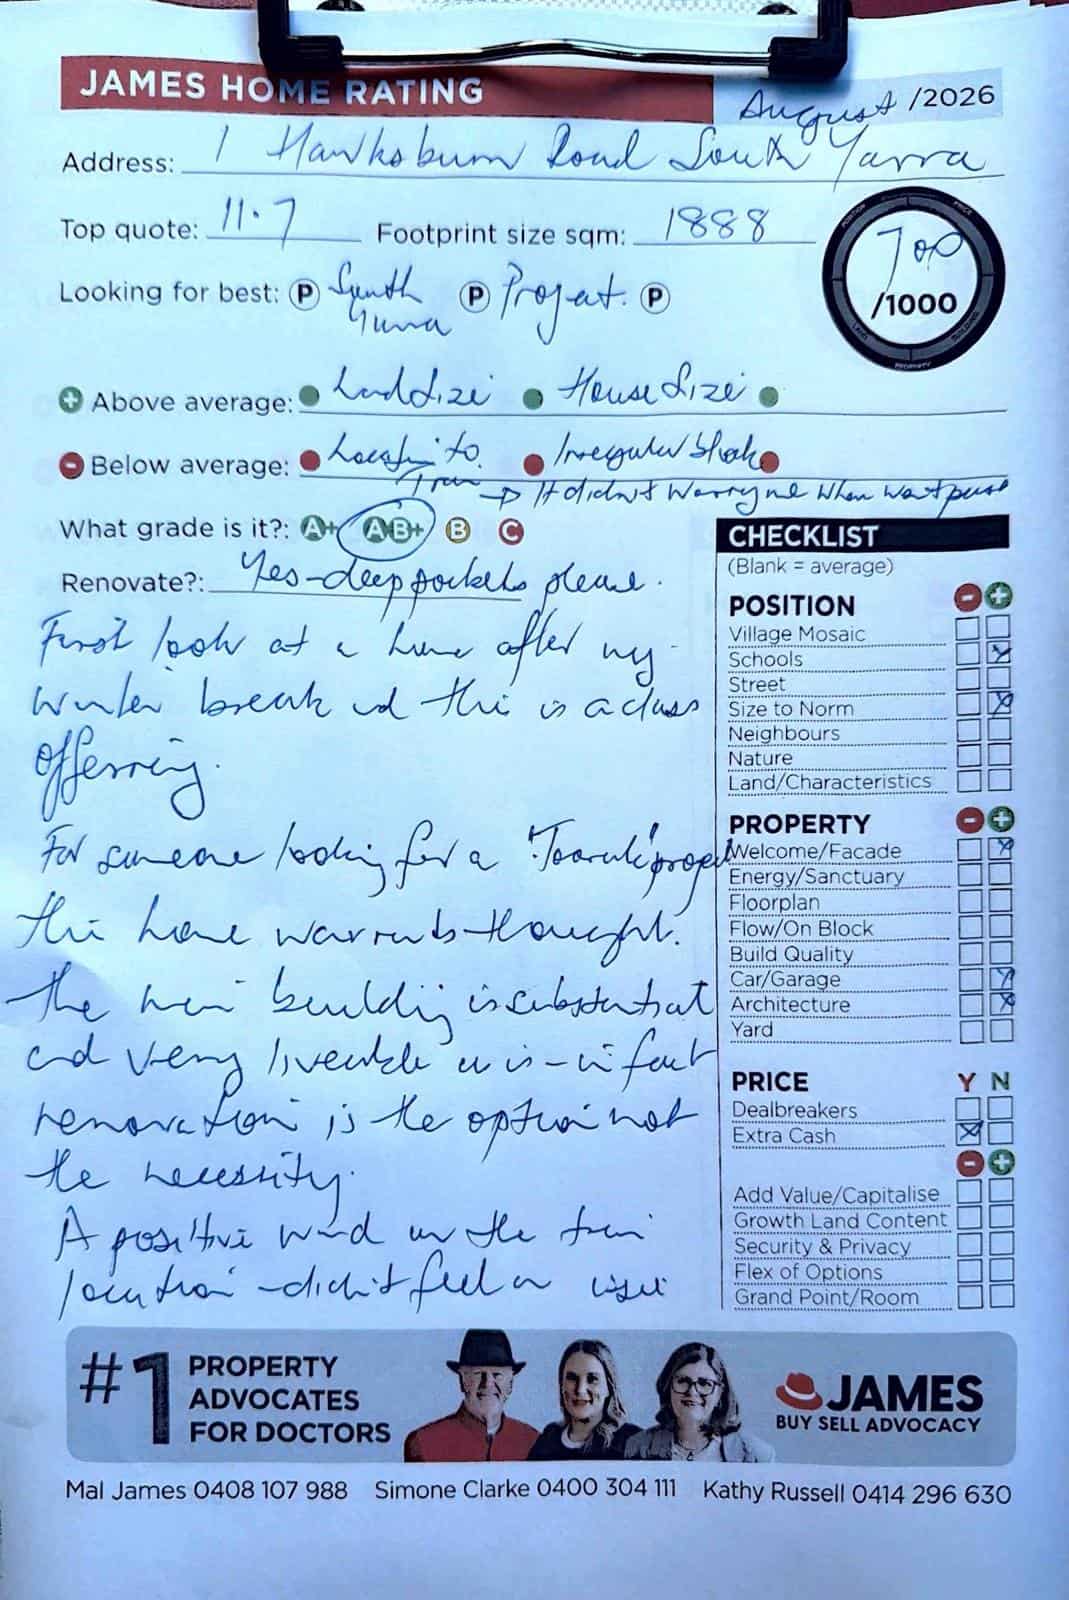 JAMES HOME RATING
August /2026
Address: 1 Hawksburn Road South Yarra
Top quote: 11.7 Footprint size sqm: 1888
700 /1000
Looking for best: P South Yarra P Project. P
+ Above average: Land Size House Size
- Below average: Location to Train Irregular block
→ It didn't worry me when went past
What grade is it?: A+ AB+ B C
Renovate?: Yes - deep pockets please.
First look at a home after my
winter break and this is a class
offering.
For someone looking for a 'Toorak' project
this home warrants thought.
The main building is substantial
and very liveable as is - in fact
renovation is the option not
the necessity.
A positive word on the train
location - didn't feel an issue
CHECKLIST
(Blank = average)
POSITION - +
Village Mosaic
Schools
Street
Size to Norm
Neighbours
Nature
Land/Characteristics
PROPERTY - +
Welcome/Facade
Energy/Sanctuary
Floorplan
Flow/On Block
Build Quality
Car/Garage
Architecture
Yard
PRICE Y N
Dealbreakers
Extra Cash
- +
Add Value/Capitalise
Growth Land Content
Security & Privacy
Flex of Options
Grand Point/Room
#1 PROPERTY
ADVOCATES
FOR DOCTORS
JAMES
BUY SELL ADVOCACY
Mal James 0408 107 988 Simone Clarke 0400 304 111 Kathy Russell 0414 296 630